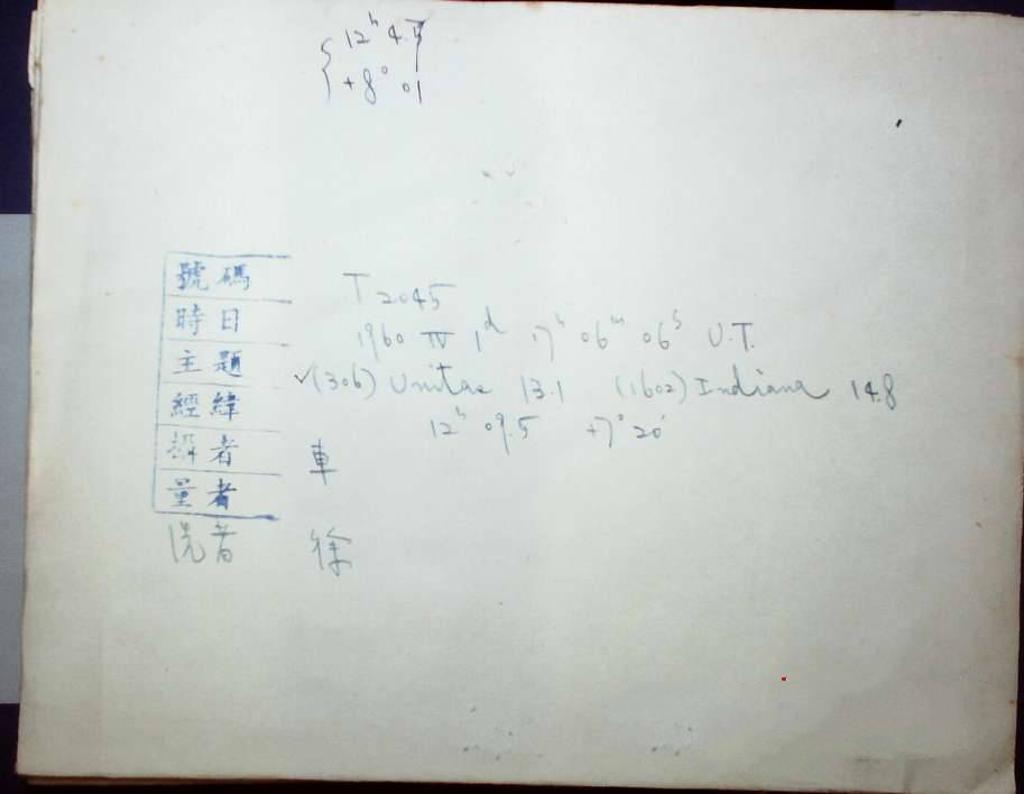 12ʰ 4.5
+8° 01
號碼 T 2045
時日 1960 IV 1ᵈ 17ʰ 06ᵐ 06ˢ U.T.
主題 ✓(306) Unitas 13.1 (1602) Indiana 14.8
經緯 12ʰ 09.5 +7° 20'
攝者 車
量者
洗者 徐